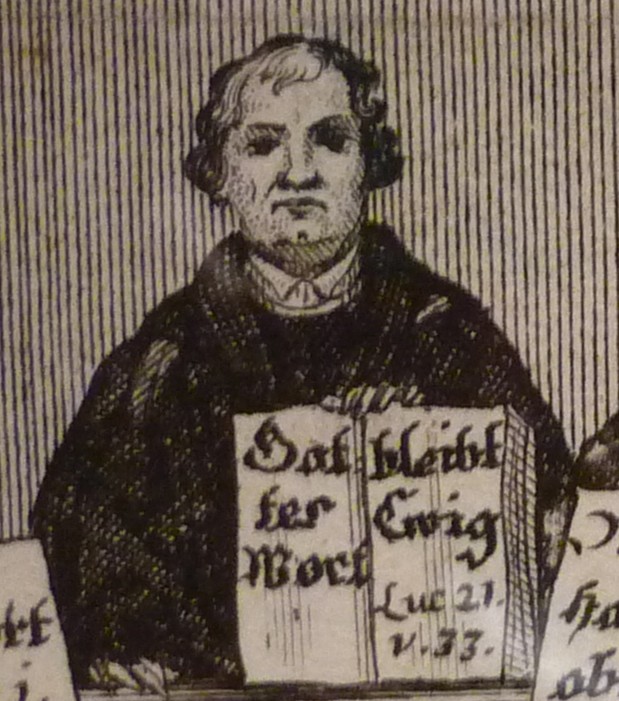 Got
tes
Wort
bleibt
Ewig
Luc 21.
v. 33.